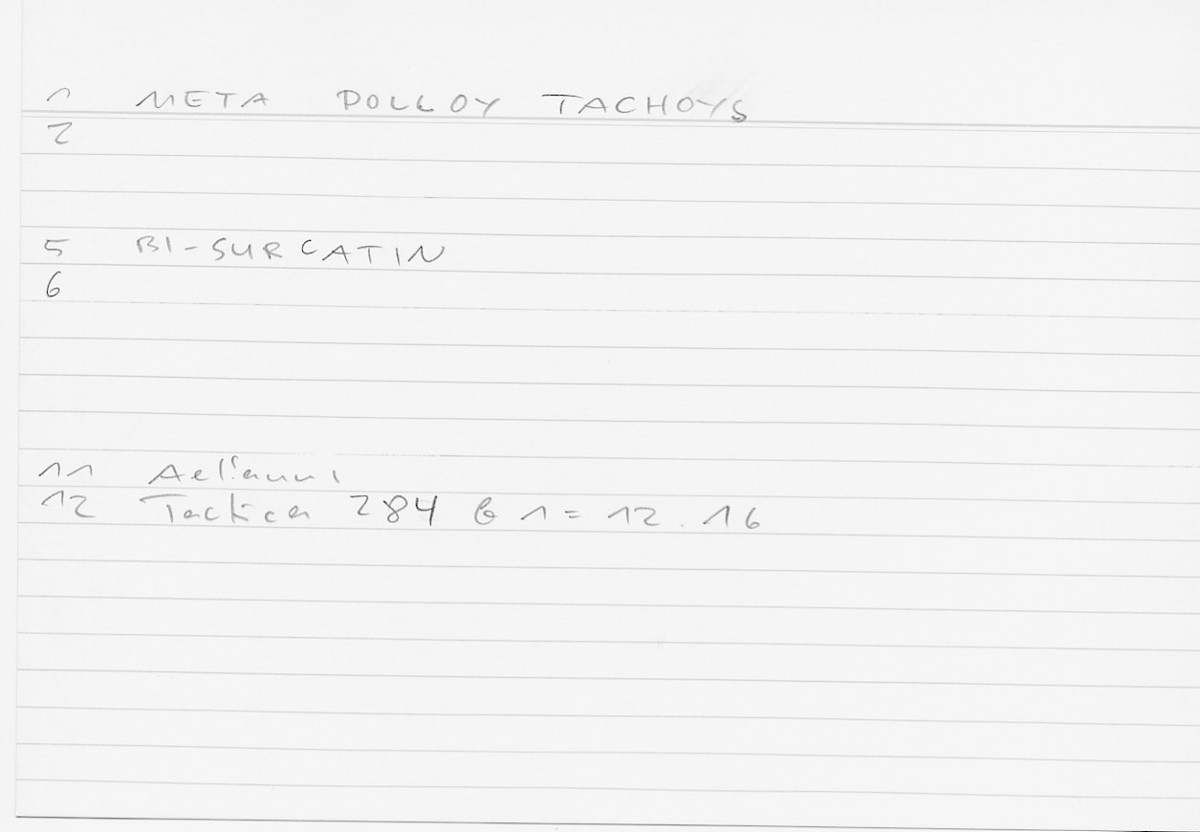 1 META DOLLOY TACHOYS
2
5 BI-SURCATIN
6
11 Aeliani
12 Tactica 284 G 1 = 12.16